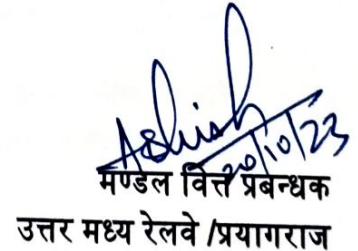 Ashish
20/10/23
मण्डल वित्त प्रबन्धक
उत्तर मध्य रेलवे /प्रयागराज